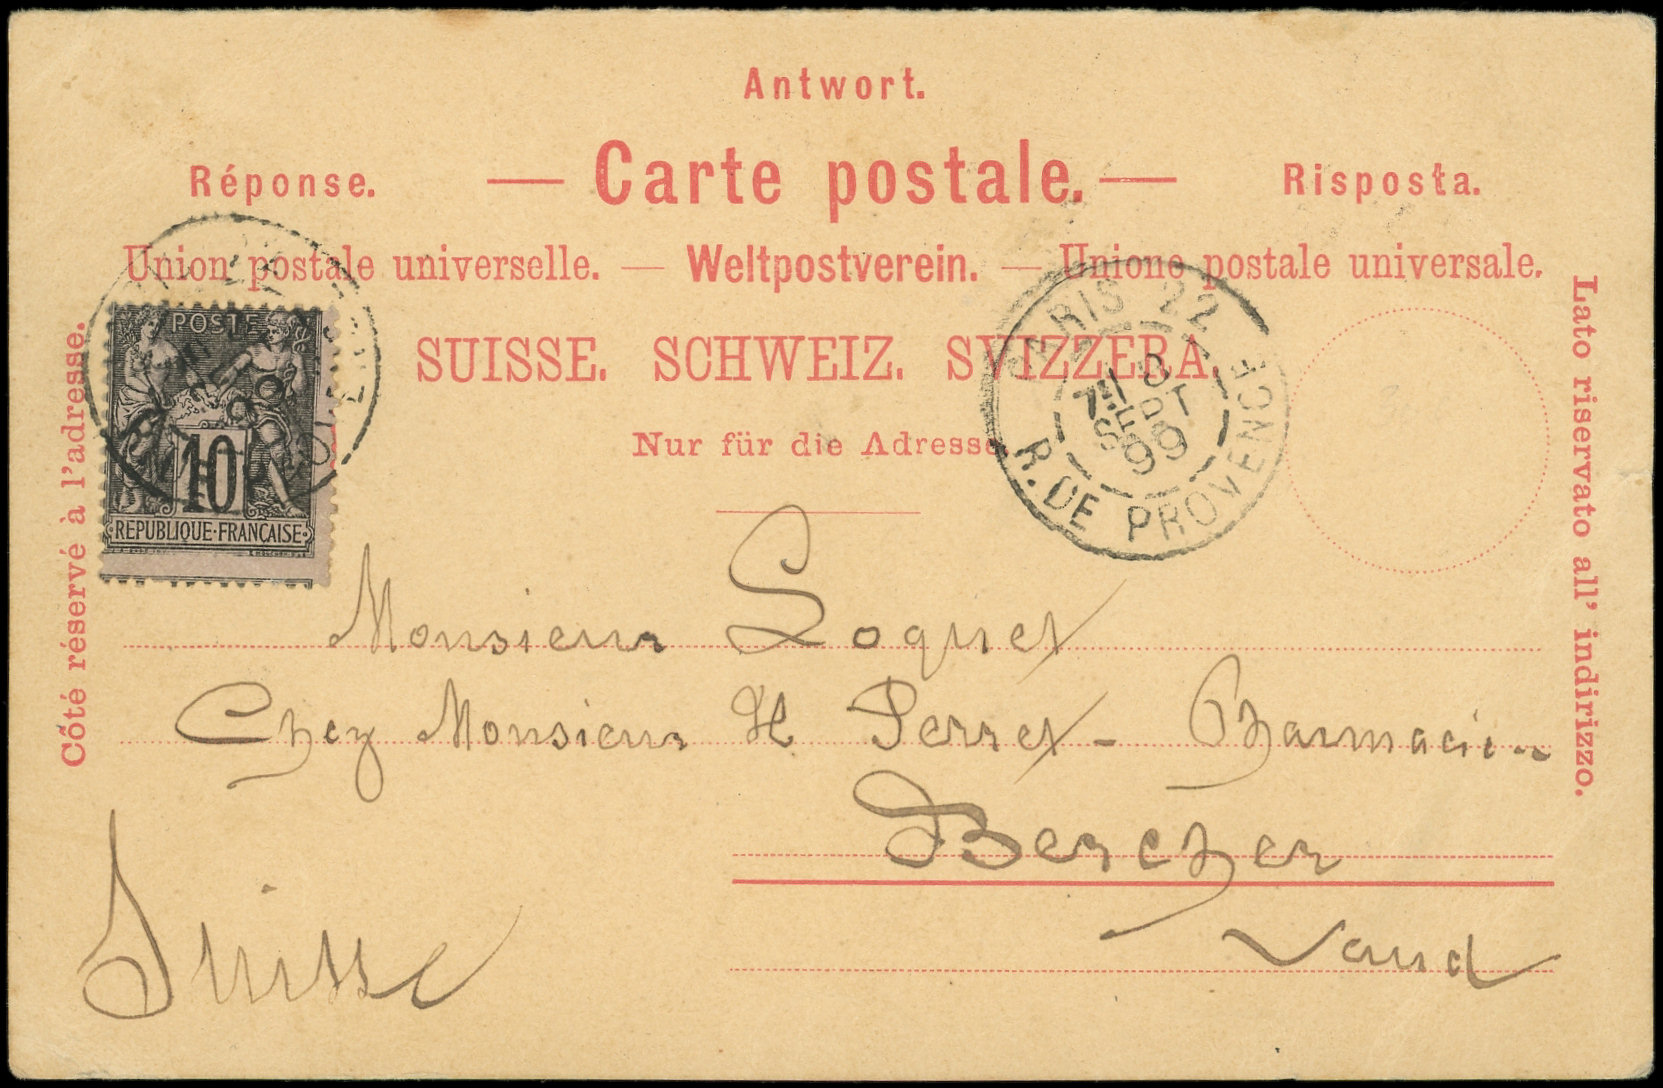 Antwort.
Réponse. — Carte postale. — Risposta.
Union postale universelle. — Weltpostverein. — Unione postale universale.
SUISSE. SCHWEIZ. SVIZZERA.
Nur für die Adresse.
Côté réservé à l'adresse.
Lato riservato all' indirizzo.
POSTE
10
REPUBLIQUE·FRANÇAISE
PARIS 22
SEPT
99
R. DE PROVENCE
Monsieur Loquet
Chez Monsieur H Perret - Pharmacien
Bercher
Vaud
Suisse